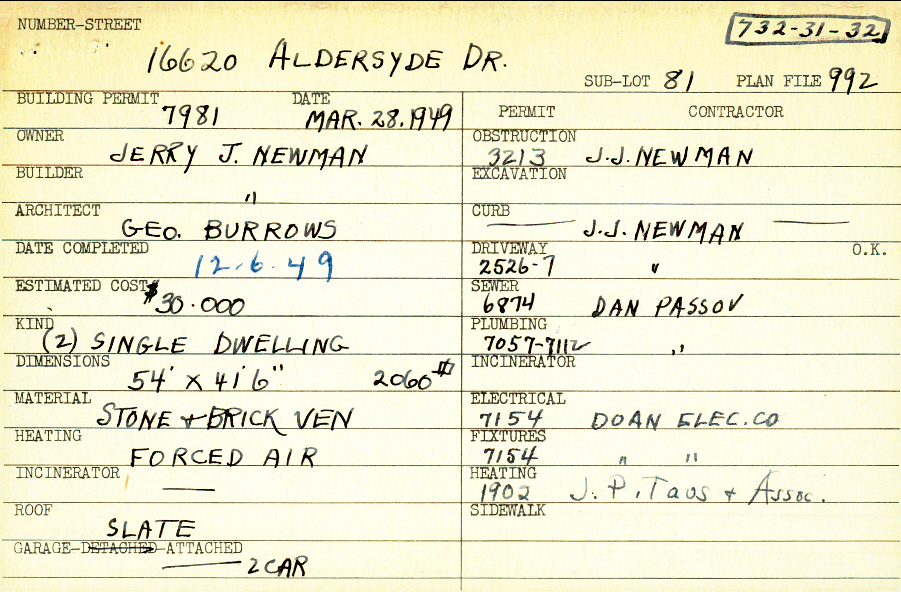 NUMBER-STREET
732-31-32
16620 ALDERSYDE DR.
SUB-LOT 81 PLAN FILE 992
BUILDING PERMIT DATE
7981 MAR. 28.1949
OWNER
JERRY J. NEWMAN
BUILDER
"
ARCHITECT
GEO. BURROWS
DATE COMPLETED
12.6.49
ESTIMATED COST
$30.000
KIND
(2) SINGLE DWELLING
DIMENSIONS
54' X 41'6" 2060#
MATERIAL
STONE + BRICK VEN
HEATING
FORCED AIR
INCINERATOR
—
ROOF
SLATE
GARAGE-DETACHED-ATTACHED
2 CAR
PERMIT CONTRACTOR
OBSTRUCTION
3213 J.J. NEWMAN
EXCAVATION
CURB
— J.J. NEWMAN —
DRIVEWAY O.K.
2526-7 "
SEWER
6874 DAN PASSOV
PLUMBING
7057-7112 "
INCINERATOR
ELECTRICAL
7154 DOAN ELEC.CO
FIXTURES
7154 " "
HEATING
1902 J. P. Taus + Assoc.
SIDEWALK